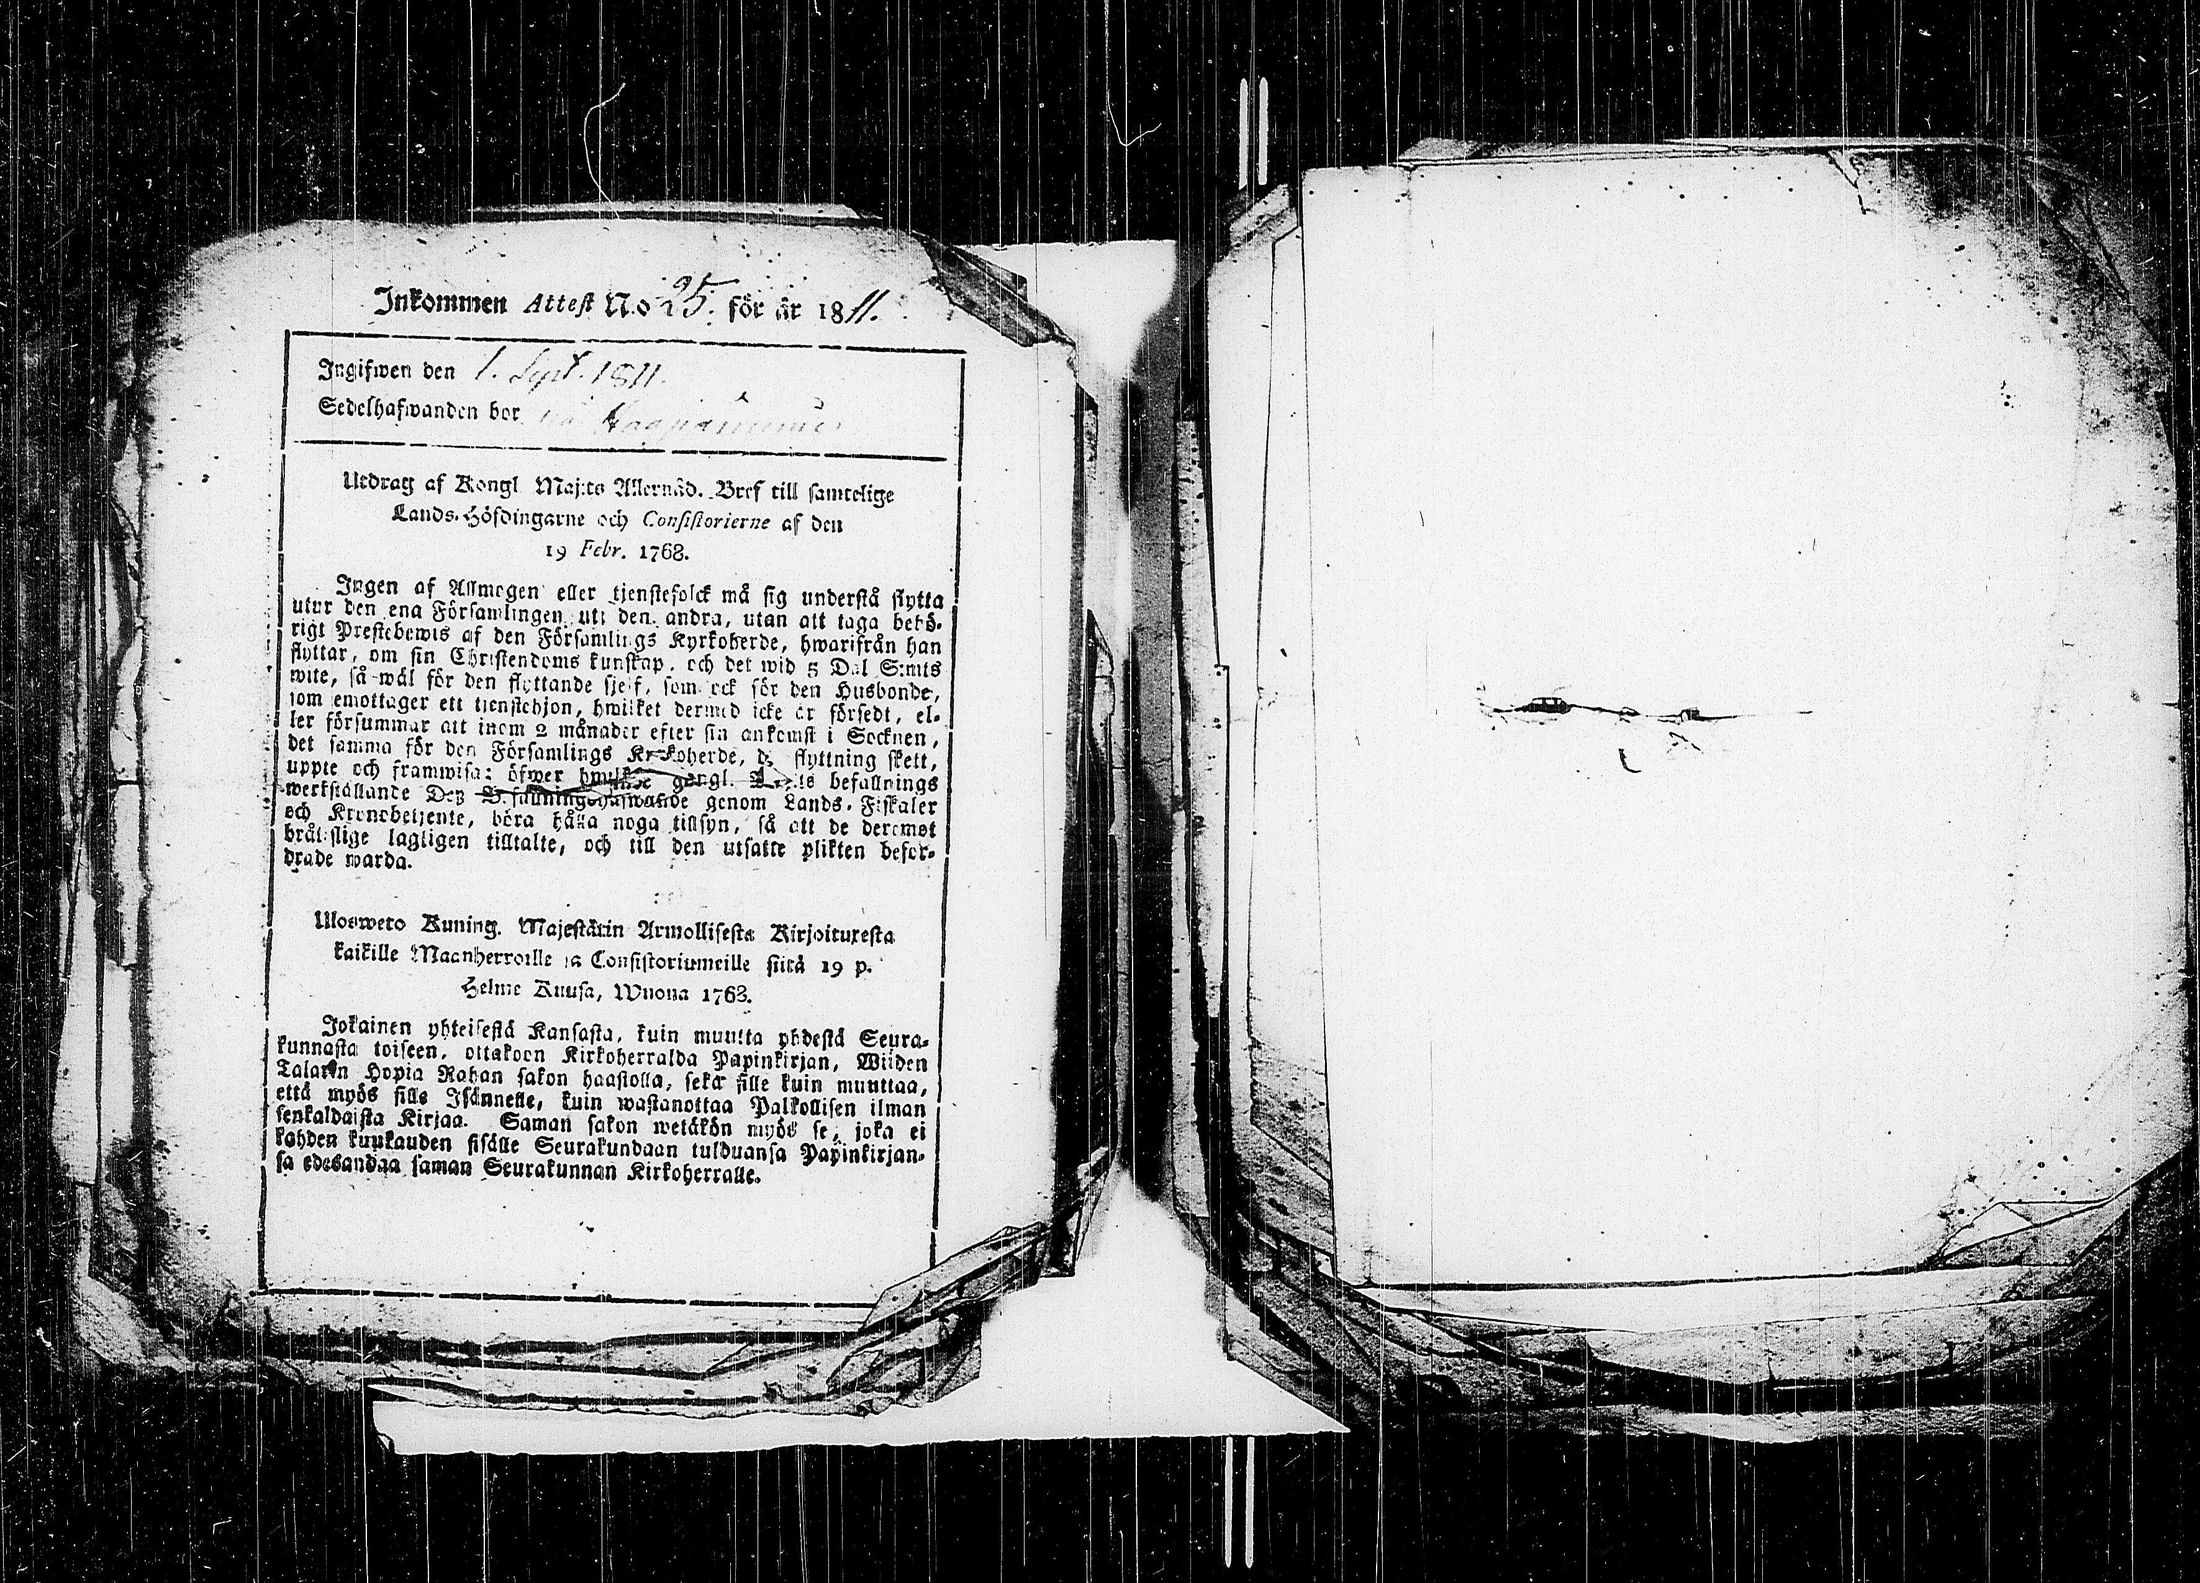 Inkommen Attest N.o 25. för år 1811.
Ingifwen den 1. Sept. 1811.
Sedelhafwanden bor
Utdrag af Kongl Maj:ts Allernåd. Bref till samtelige
Lands-Höfdingarne och Consistorierne af den
19 Febr. 1768.
Ingen af Allmogen eller tjenstefolck må sig understå flytta
utur den ena Församlingen uti den andra, utan att taga behö-
rigt Prestebewis af den Församlings Kyrkoherde, hwarifrån han
flyttar, om sin Christendoms kunskap, och det wid 5 Dal S:mts
wite, så wäl för den flyttande sjelf, som ock för den Husbonde,
som emottager ett tjenstehjon, hwilket dermed icke är försedt, el-
ler försummar att inom 2 månader efter sin ankomst i Socknen,
det samma för den Församlings Kyrkoherde, dit flyttning skett,
uppte och framwisa: öfwer hwilket befallnings
werkställande Dess Befallningshafwande genom Lands-Fiskaler
och Kronobetjente, böra hålla noga tillsyn, så att de deremot
bråtslige lagligen tilltalte, och till den utsatte plikten befor-
drade warda.
Ulosweto Kuning. Majestätin Armollisesta Kirjoituxesta
kaikille Maanherroille ja Consistoriumeille siitä 19 p.
Helme Kuusa, Wuona 1768.
Jokainen yhteisestä Kansasta, kuin muutta yhdestä Seura-
kunnasta toiseen, ottakoon Kirkoherralda Papinkirjan, Wiiden
Talarin Hopia Rahan sakon haastolla, sekä sille kuin muuttaa,
että myös sille Isännelle, kuin wastanottaa Palkollisen ilman
senkaldaista Kirjaa. Saman sakon wetäkön myös se, joka ei
kahden kuukauden sisälle Seurakundaan tulduansa Papinkirjan-
sa edesandaa saman Seurakunnan Kirkoherralle.